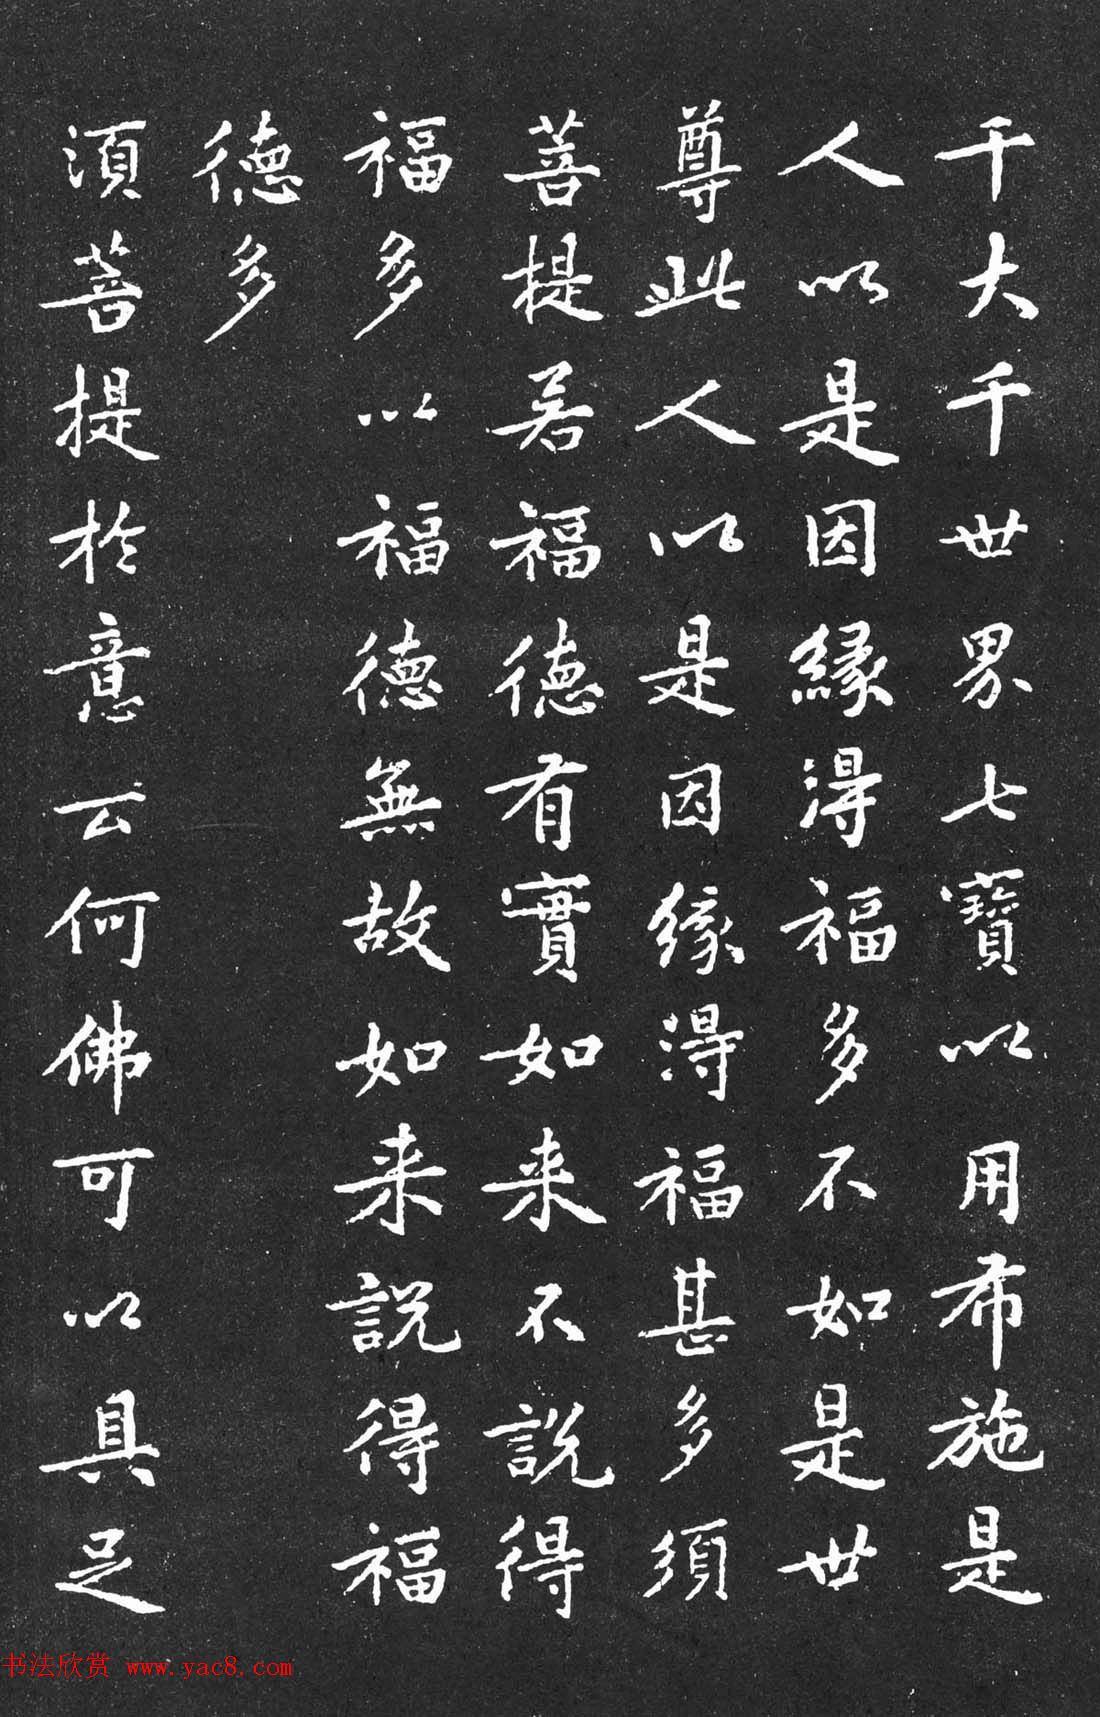 千大千世界七寶以用布施是
人以是因緣得福多不如是世
尊此人以是因緣得福甚多須
菩提若福德有實如来不說得
福多以福德無故如来說得福
德多
須菩提於意云何佛可以具足
书法欣赏 www.yac8.com